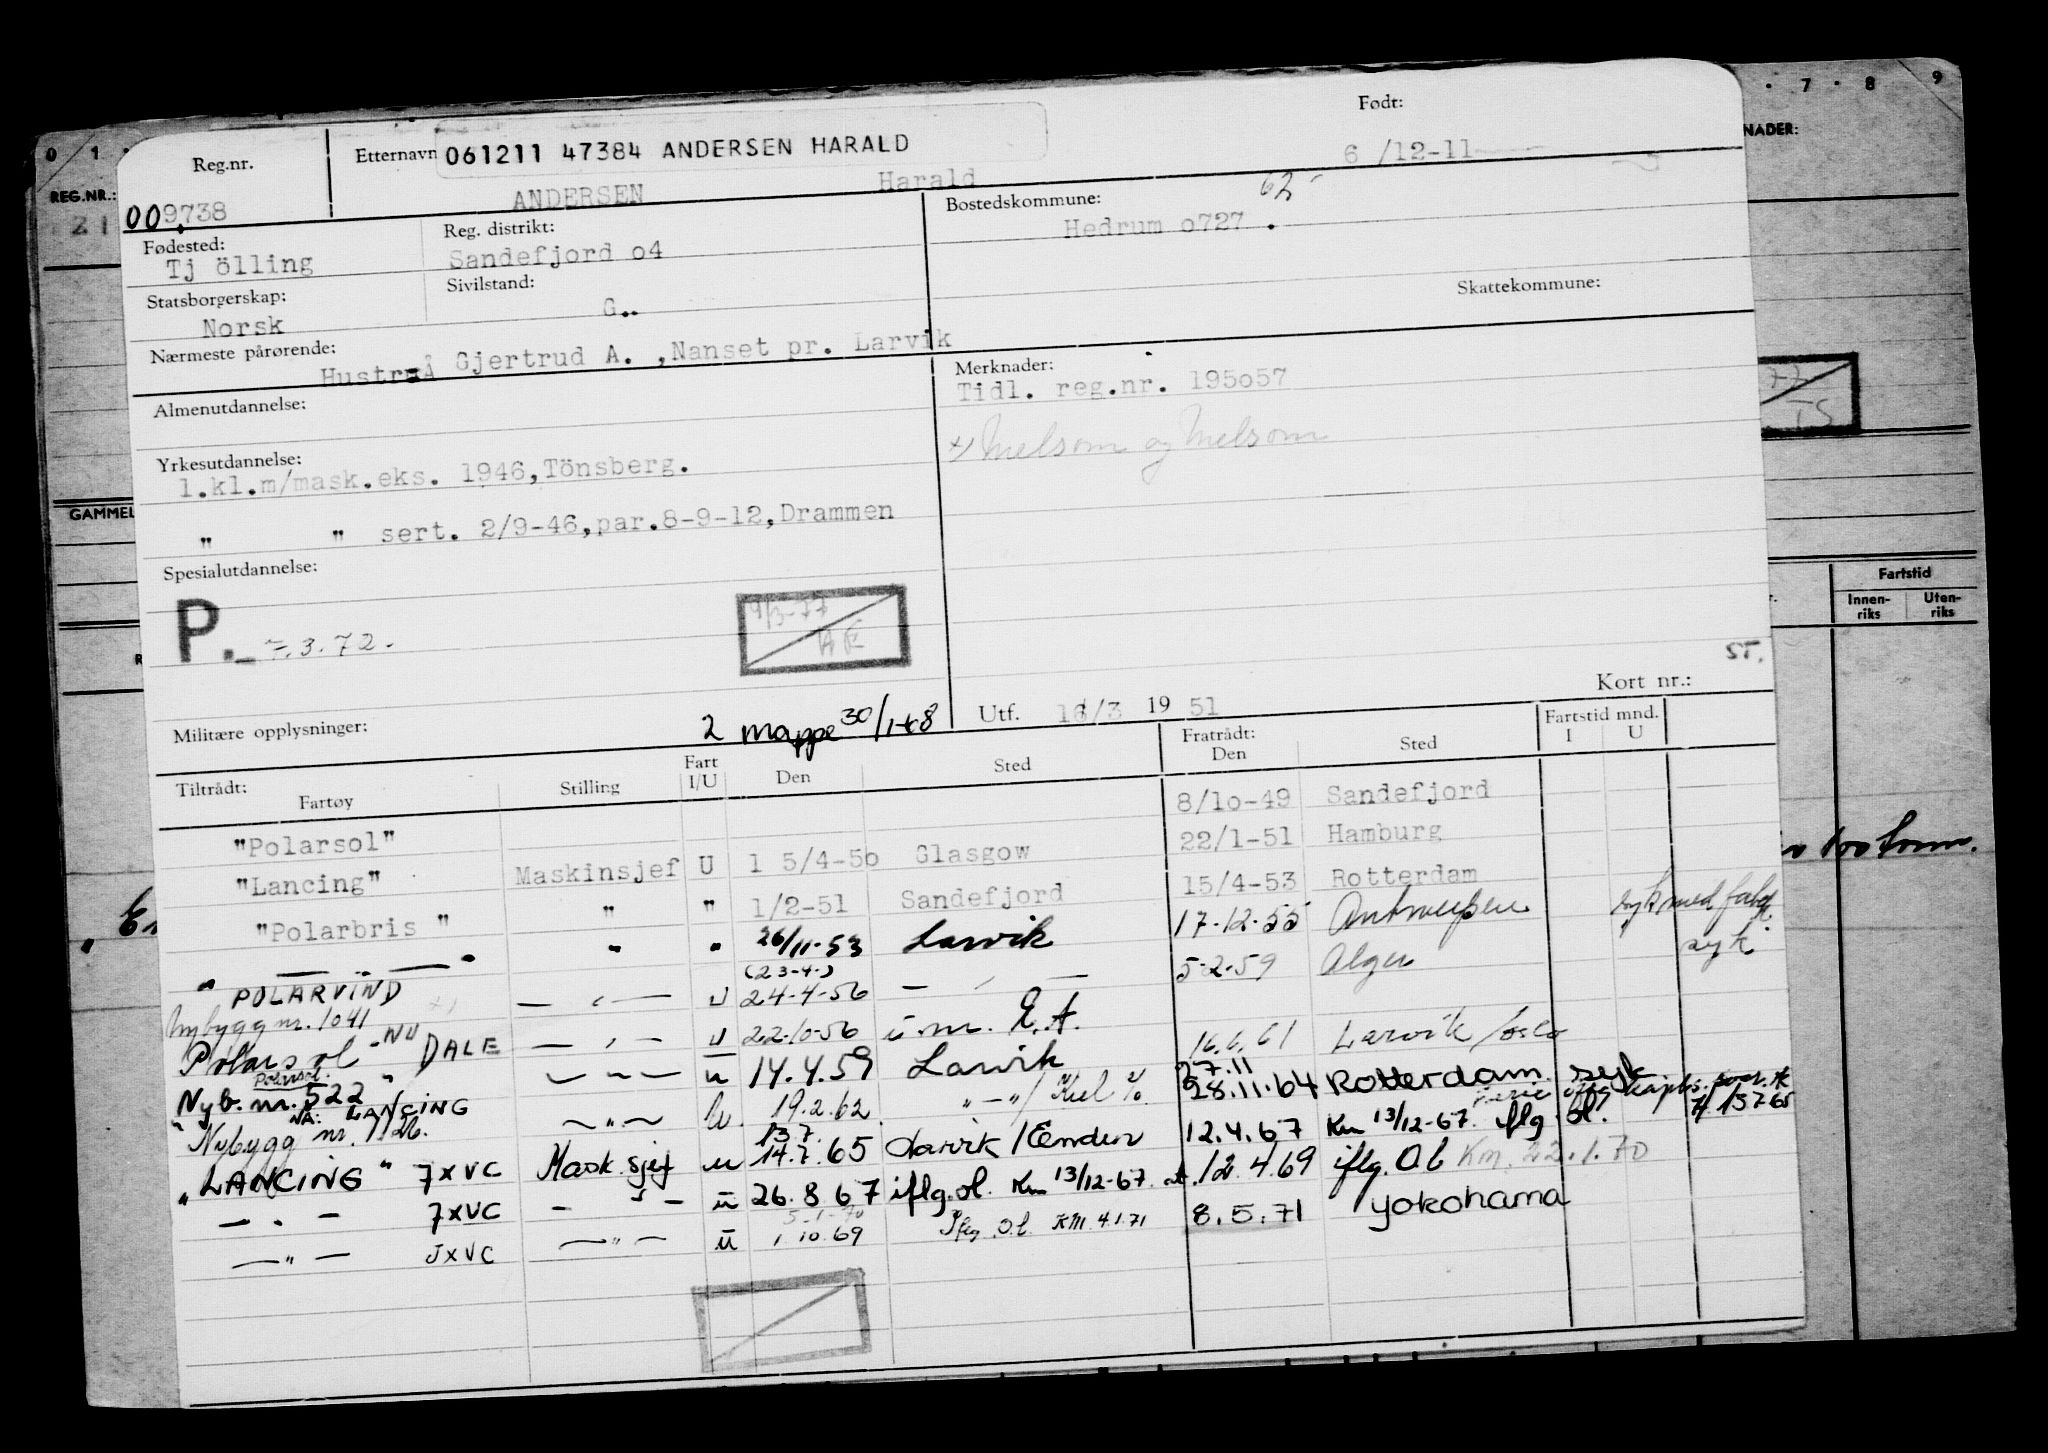 0 1 . 7 . 8 9
REG.NR.: NADER:
Reg.nr. Etternavn 061211 47384 ANDERSEN HARALD Født:
009738 ANDERSEN Harald 6 /12-11
Fødested: Reg. distrikt: Bostedskommune: 62
Tj ölling Sandefjord o4 Hedrum o727 .
Statsborgerskap: Sivilstand: Skattekommune:
Norsk G..
Nærmeste pårørende: Gjertrud A. ,Nanset pr. Larvik
Merknader:
Tidl. reg.nr. 195o57
Melsom og Melsom
Almenutdannelse:
Yrkesutdannelse:
1.kl.m/mask.eks. 1946,Tönsberg.
" " sert. 2/9-46,par.8-9-12,Drammen
GAMMEL
Spesialutdannelse:
Fartstid
Innen-riks Uten-riks
P. 7.3.72. 9/3-77 AE
ST.
Kort nr.:
Militære opplysninger: 2 mappe 30/1-68 Utf. 16/3 19 51
Tiltrådt: Fratrådt: Fartstid mnd.
Fartøy Stilling Fart I/U Den Sted Den Sted I U
"Polarsol" 8/1o-49 Sandefjord
"Lancing" Maskinsjef U 1 5/4-5o Glasgow 22/1-51 Hamburg
"Polarbris " " " 1/2-51 Sandefjord 15/4-53 Rotterdam
" — — " " " 26/11-53 Larvik 17-12-55 Antwerpen
(23-4-)
" POLARVIND — " — U 24-4-56 — " — 5-2-59 Alger syk
Nybygg nr. 1041
Polarsol NU DALE — " — U 22-10-56 ü.m. E.A.
Polarsol
Nyb. nr. 522 " — " — u 14.4.59 Larvik 16.6.61 Larvik / Oslo
NÅ: LANCING
Nybygg nr. — " — U. 19.2.62 " — " / Kiel 27.11 28.11.64 Rotterdam. syk
"LANCING" 7XVC Mask.sjef u 13.7. 14.7.65 Larvik / Emden 12.4.67 Km 13/12-67. iflg. ol.
— " — 7XVC — " — ü 26.8.67 iflg. ol. Km 13/12-67. 12.4.69 iflg. Ol Km. 22.1.70
— " — JXVC — " — ü 1.10.69 Iflg. O.l. KM. 4.1.71 8.5.71 Yokohama